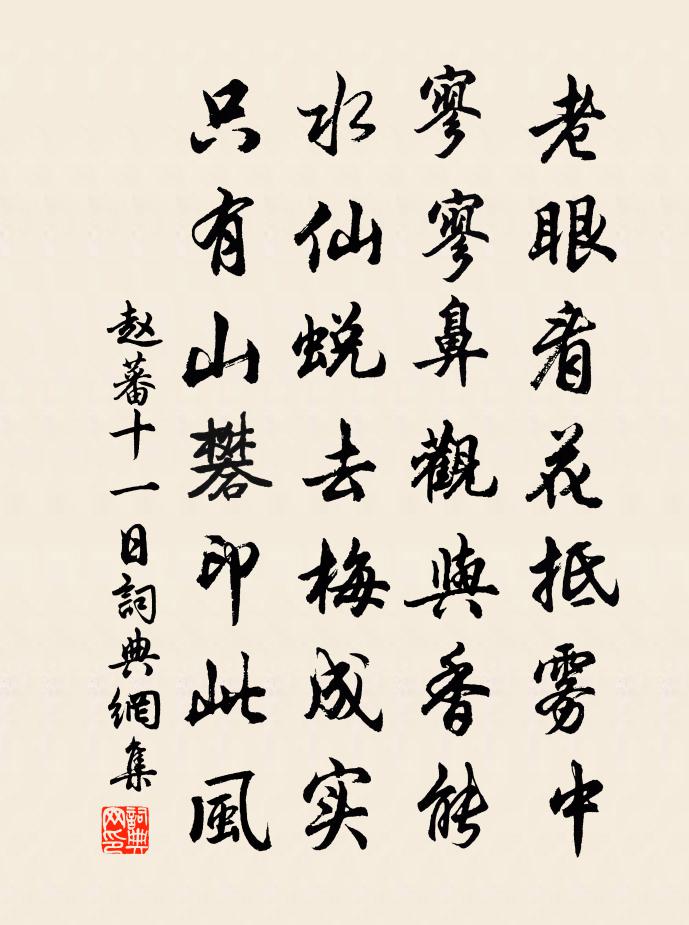 老眼看花抵雾中
寥寥鼻觀與香能
水仙蜕去梅成实
只有山礬印此風
赵蕃十一日詞典網集
詞典網印